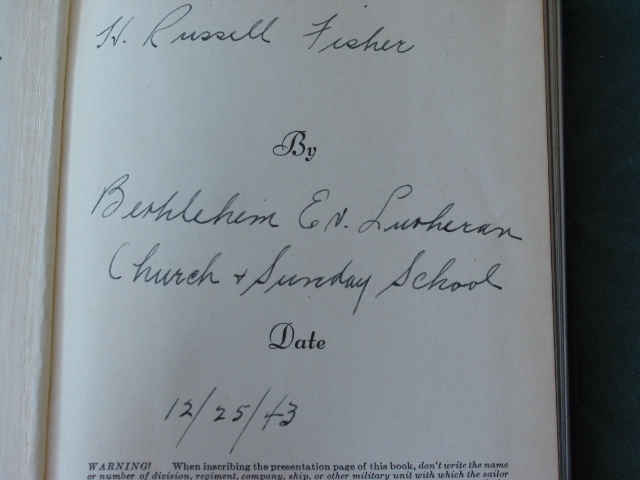 H. Russell Fisher
By
Bethlehem Ev. Lutheran
Church + Sunday School
Date
12/25/43
WARNING! When inscribing the presentation page of this book, don't write the name
or number of division, regiment, company, ship, or other military unit with which the sailor